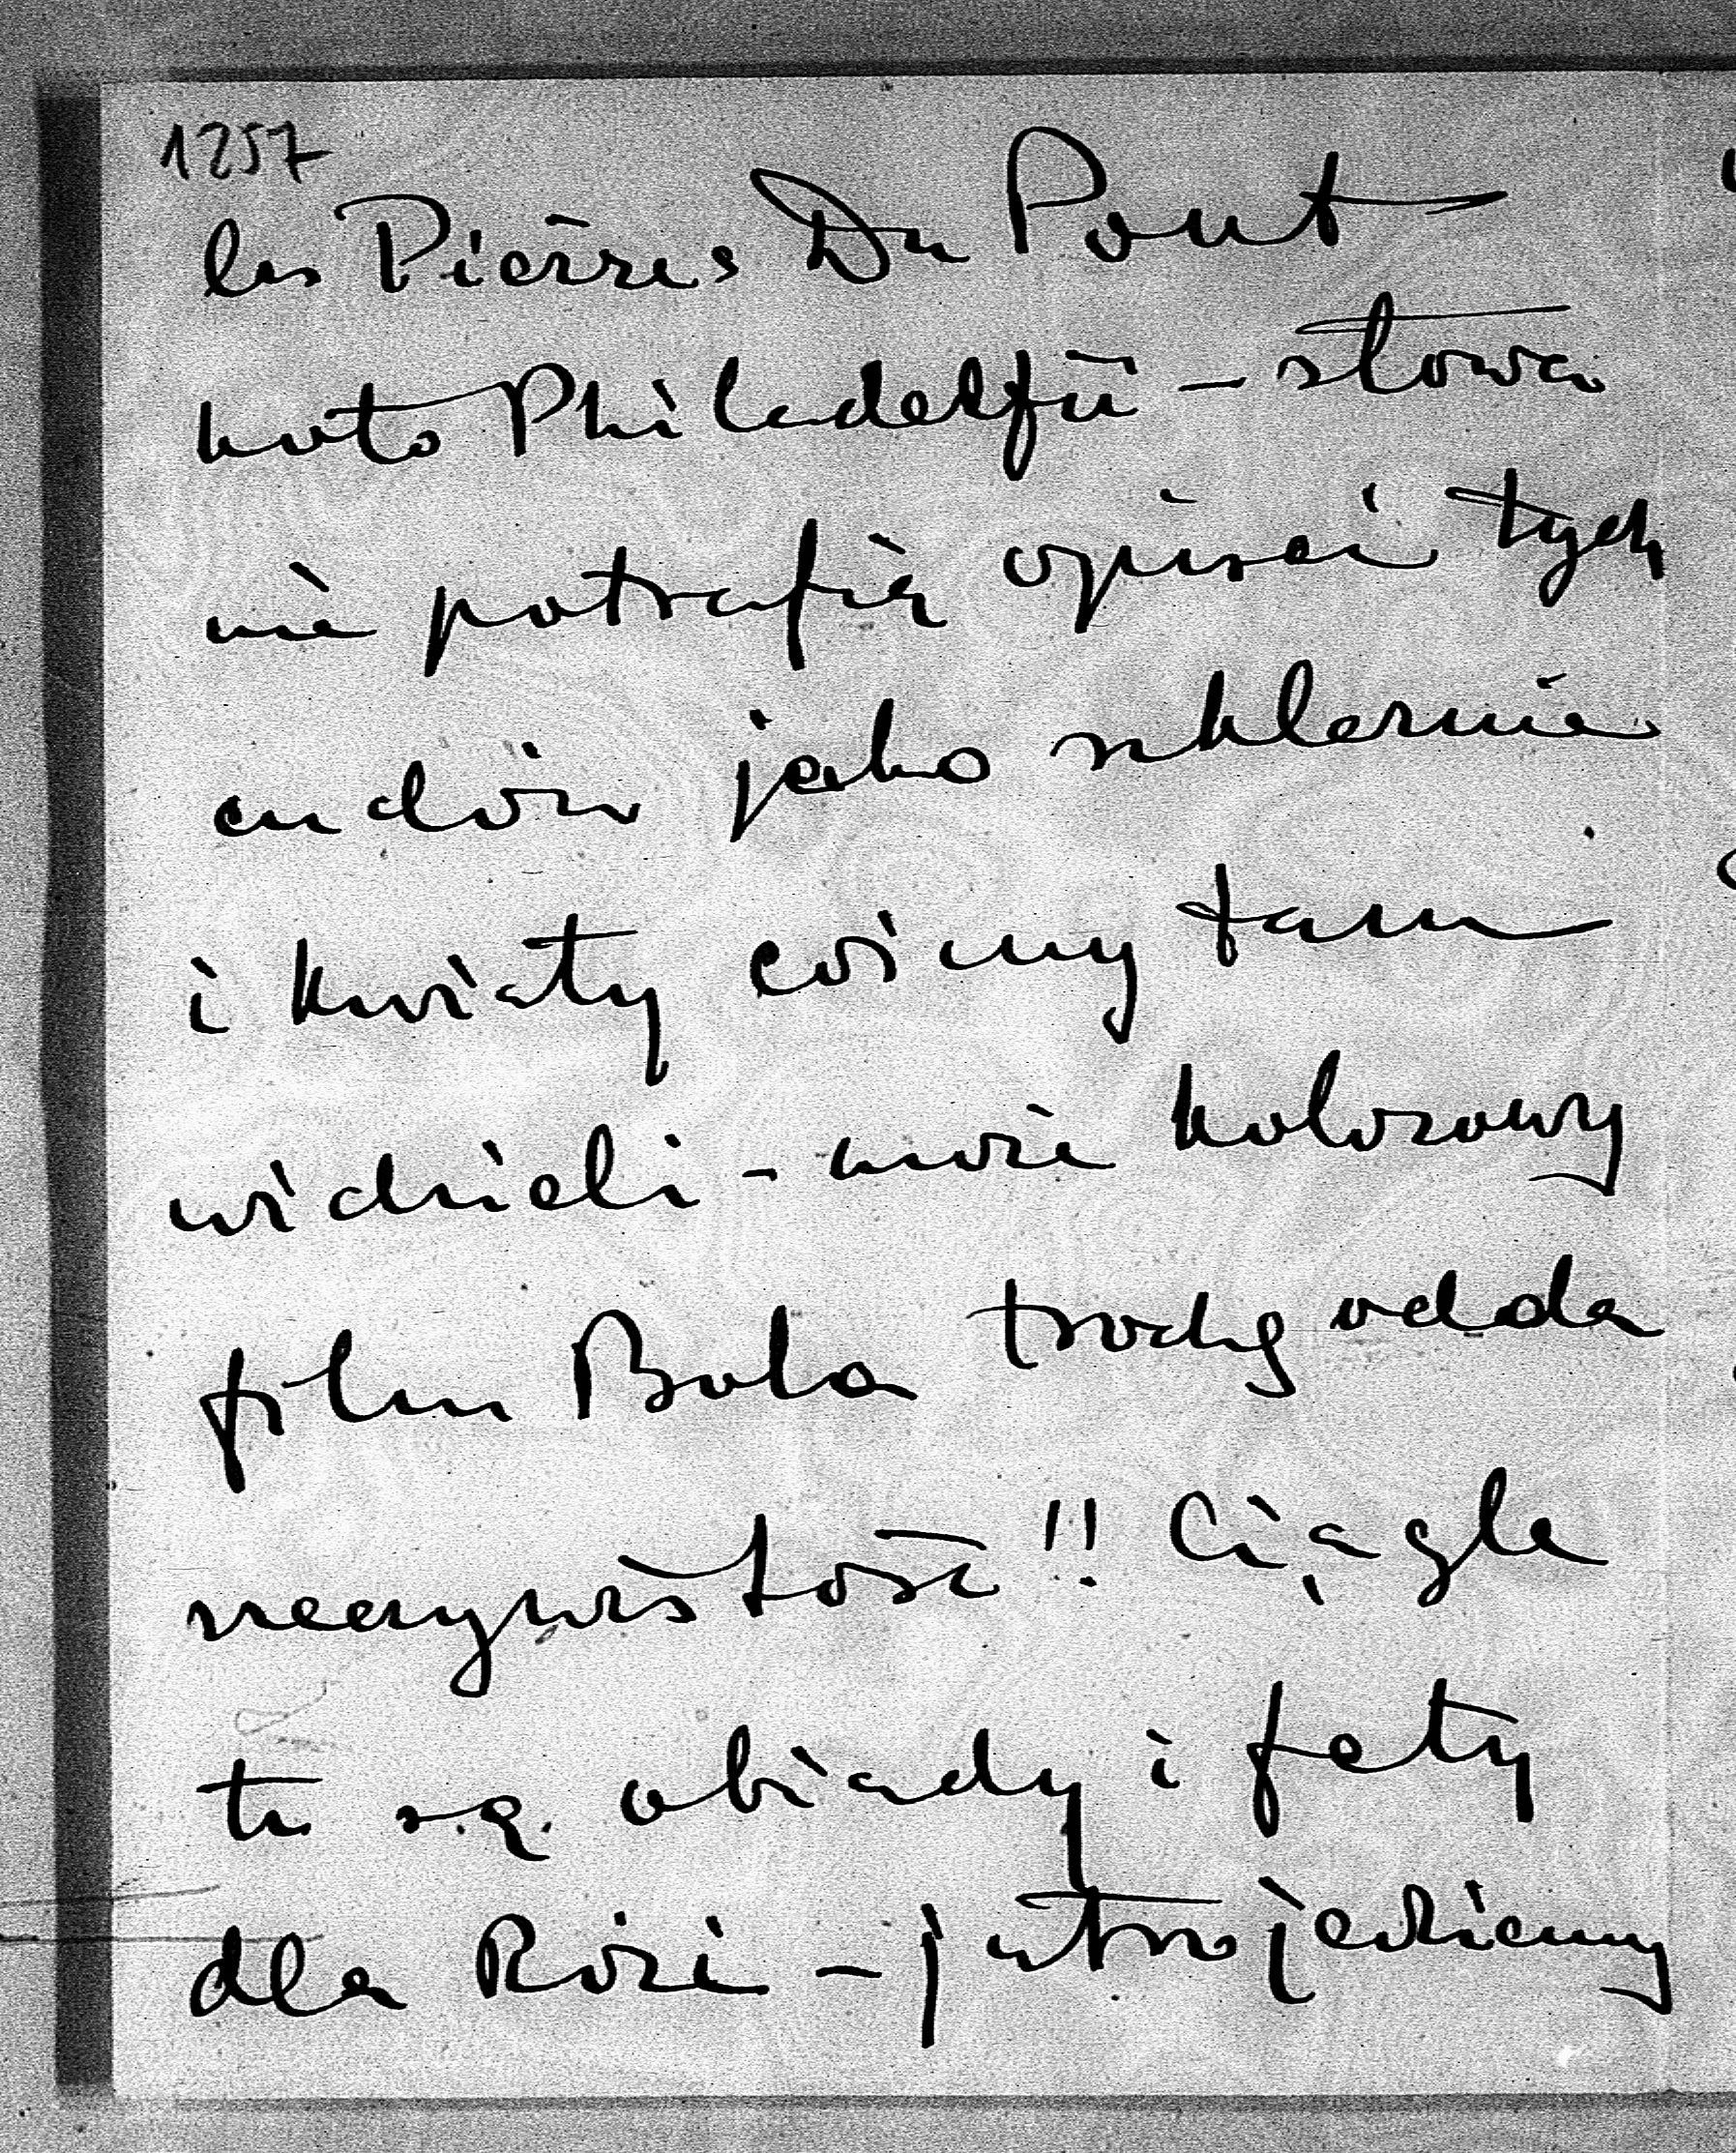 1257
les Pierres Du Pont
koło Philadelfii – słowa
nie potrafią opisać tych
cudów jako szklarnie
i kwiaty cośmy tam
widzieli – może kolorowy
film Bola trochę odda
rzeczywistość!! Ciągle
tu są obiady i fety
dla Rózi – jutro jedziemy